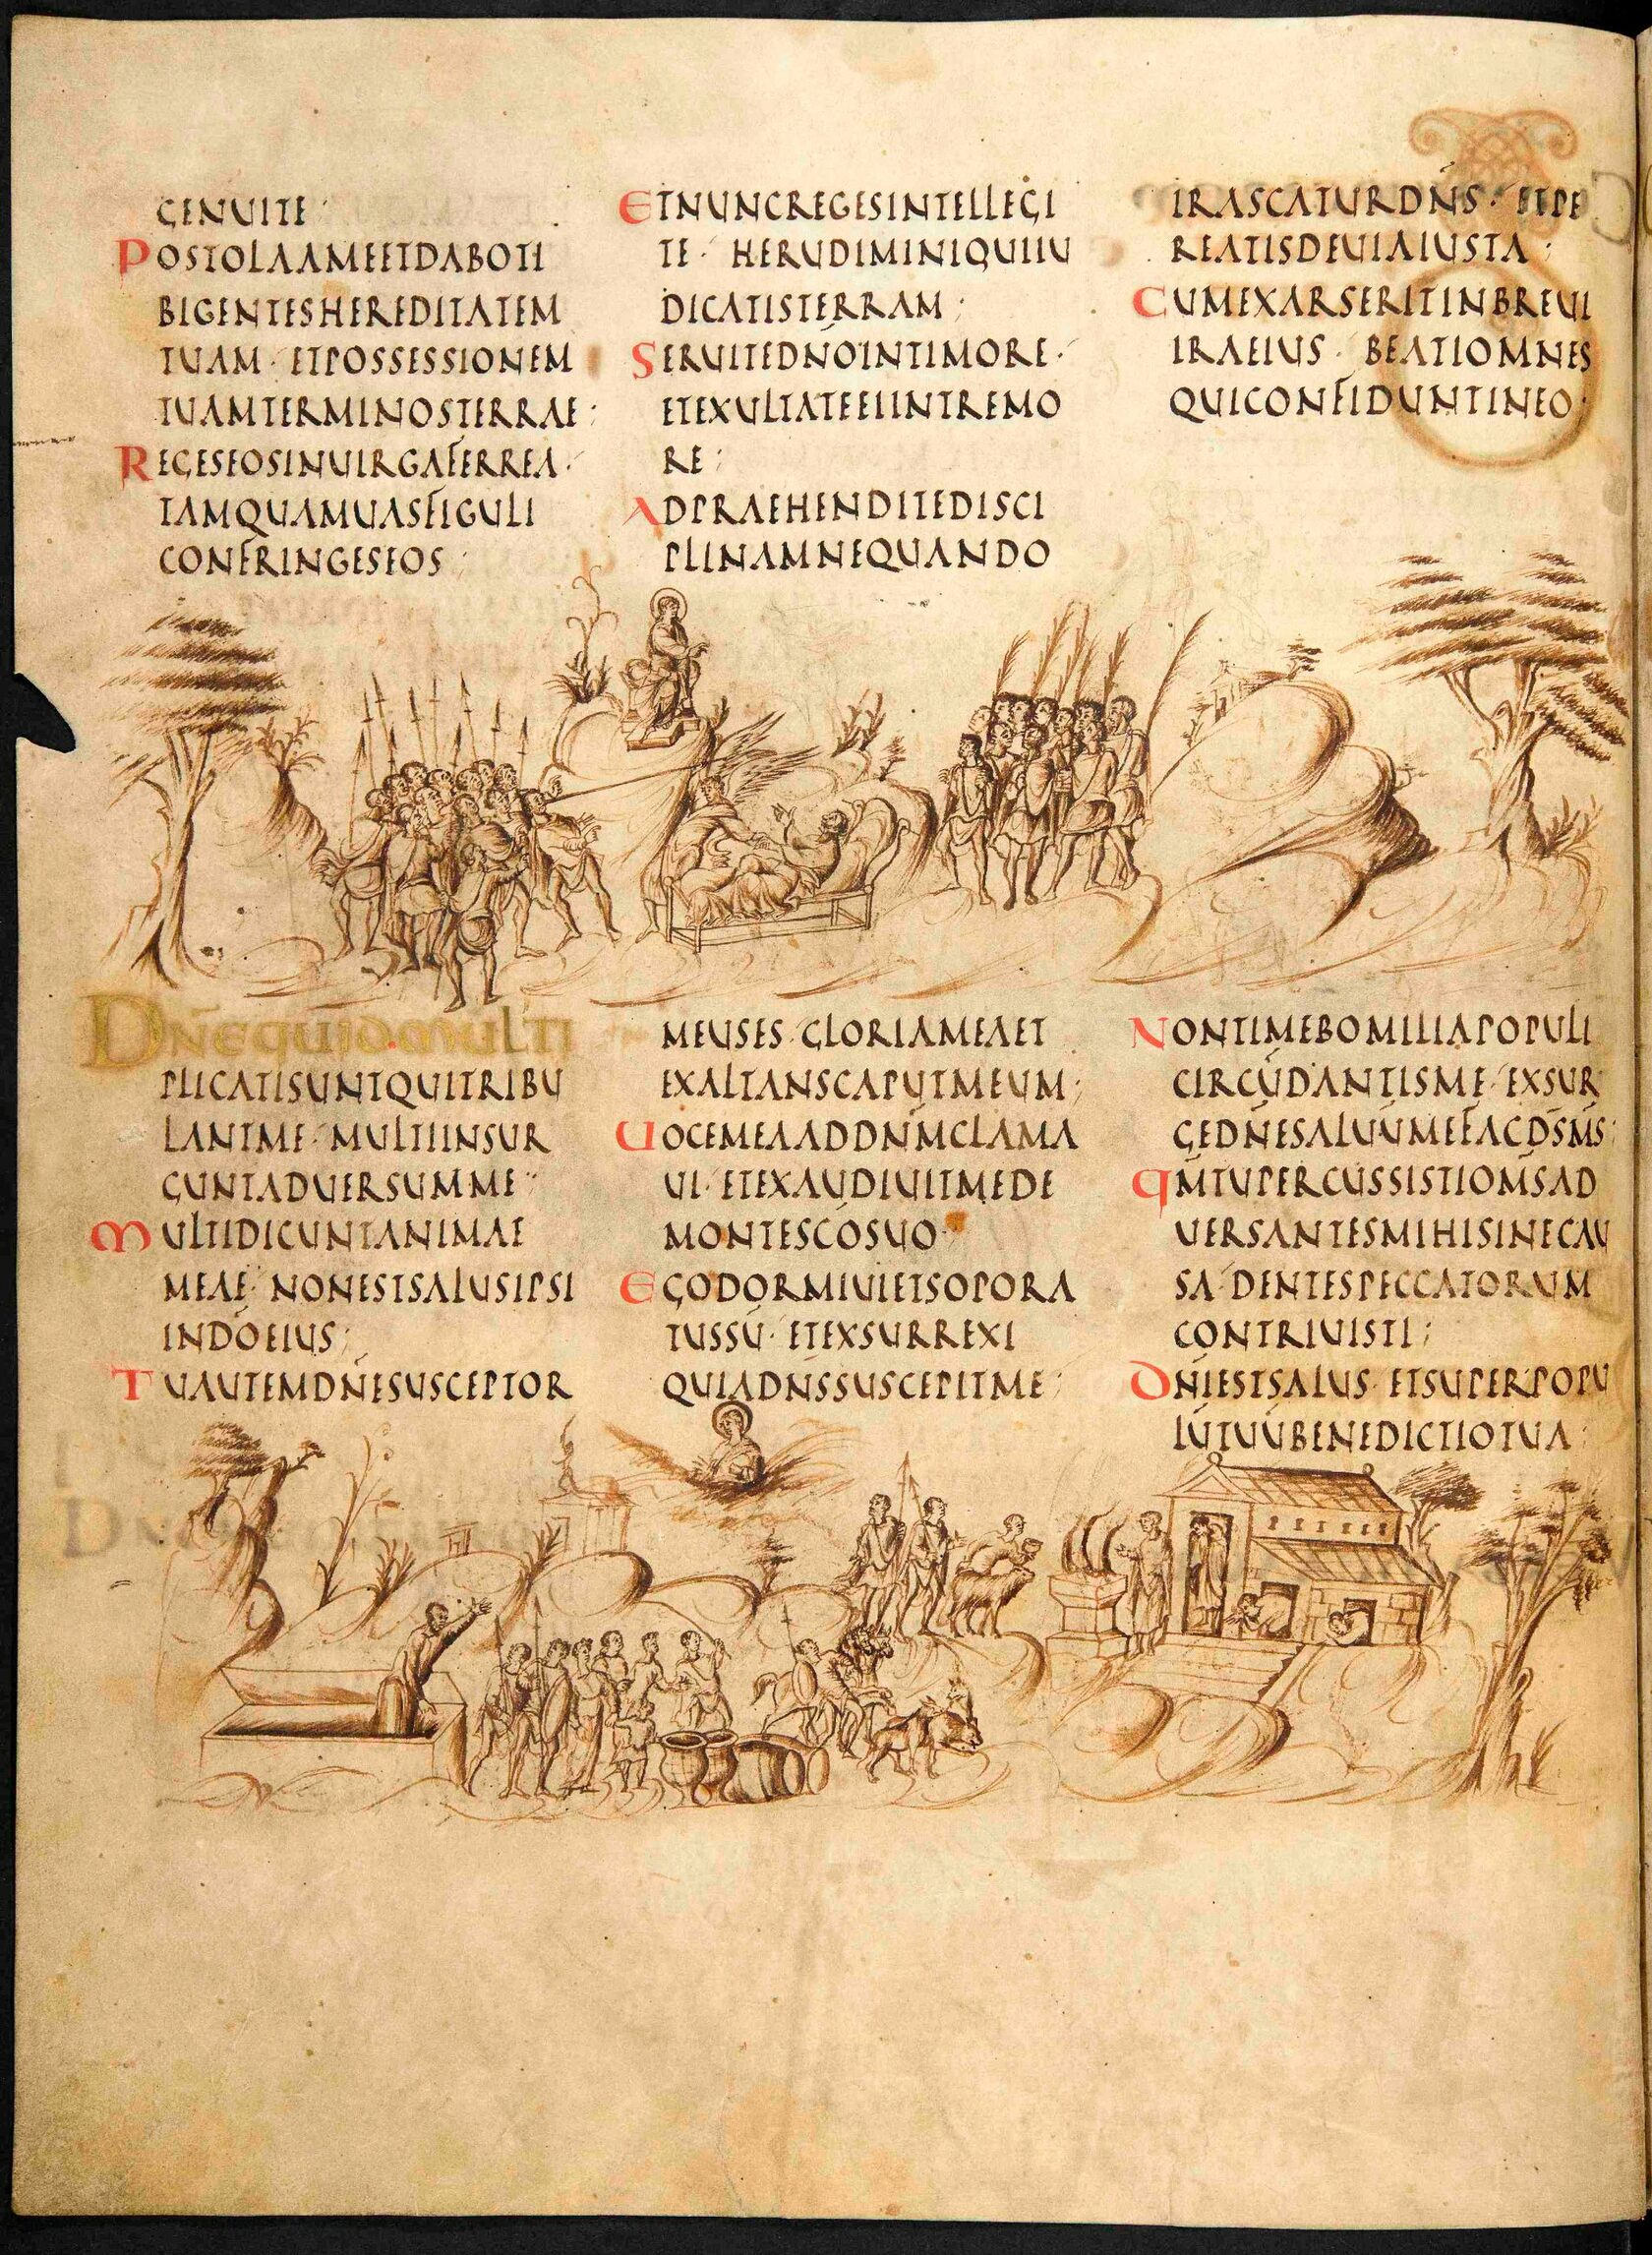 GENUITE
POSTOLAAMEETDABOTI
BIGENTESHEREDITATEM
TUAM· ETPOSSESSIONEM
TUAMTERMINOSTERRAE:
REGESEOSINUIRGAFERREA·
TAMQUAMUASFIGULI
CONFRINGESEOS;
ETNUNCREGESINTELLEGI
TE· HERUDIMINIQUIIU
DICATISTERRAM;
SERUITEDNOINTIMORE·
ETEXULTATEEIINTREMO
RE;
ADPRAEHENDITEDISCI
PLINAMNEQUANDO
IRASCATURDN̄S· ETPE
REATISDEUIAIUSTA;
CUMEXARSERITINBREUI
IRAEIUS· BEATIOMNES
QUICONFIDUNTINEO;
DN̄EQUIDMULTI
PLICATISUNTQUITRIBU
LANTME· MULTIINSUR
GUNTADUERSUMME·
MULTIDICUNTANIMAE
MEAE· NONESTSALUSIPSI
INDŌEIUS;
TUAUTEMDN̄ESUSCEPTOR
MEUSES· GLORIAMEAET
EXALTANSCAPUTMEUM;
UOCEMEAADDN̄MCLAMA
UI· ETEXAUDIUITMEDE
MONTESCŌSUO·
EGODORMIUIETSOPORA
TUSSŪ· ETEXSURREXI
QUIADN̄SSUSCEPITME;
NONTIMEBOMILIAPOPULI
CIRCŪDANTISME· EXSUR
GEDN̄ESALUŪMEFACD̄SM̄S;
QM̄TUPERCUSSISTIOM̄SAD
UERSANTESMIHISINECAU
SA· DENTESPECCATORUM
CONTRIUISTI;
DN̄IESTSALUS· ETSUPERPOPU
LŪTUŪBENEDICTIOTUA;